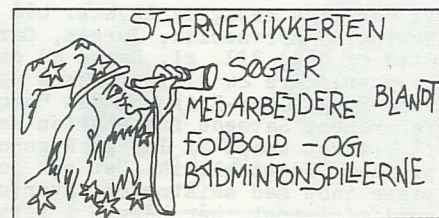 STJERNEKIKKERTEN
SØGER
MEDARBEJDERE BLANDT
FODBOLD - OG
BADMINTONSPILLERNE